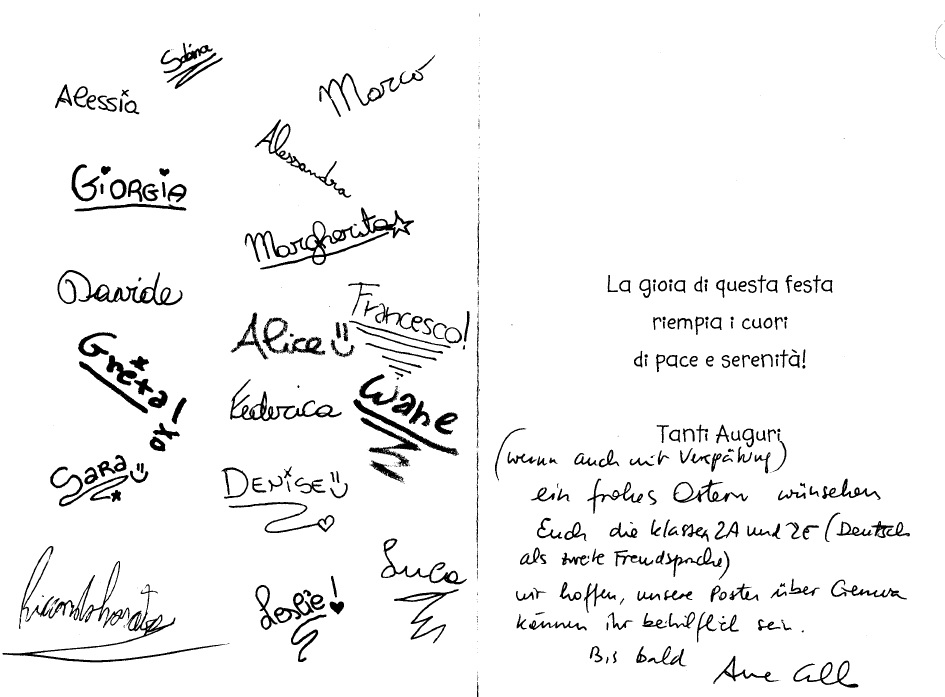 Sabina
Alessia
Marco
Alessandra
GiORGiA
Margherita
Davide
Francesco!
Alice
Greta!
xo
Federica
Sara
DENiSE
Luca
Leslie!
La gioia di questa festa
riempia i cuori
di pace e serenità!
Tanti Auguri
(wenn auch mit Verspätung)
ein frohes Ostern wünschen
Euch die klassen 2A und 2E (Deutsch
als zweite Fremdsprache)
wir hoffen, unsere Poster über Genova
können ihr behilflich sein.
Bis bald